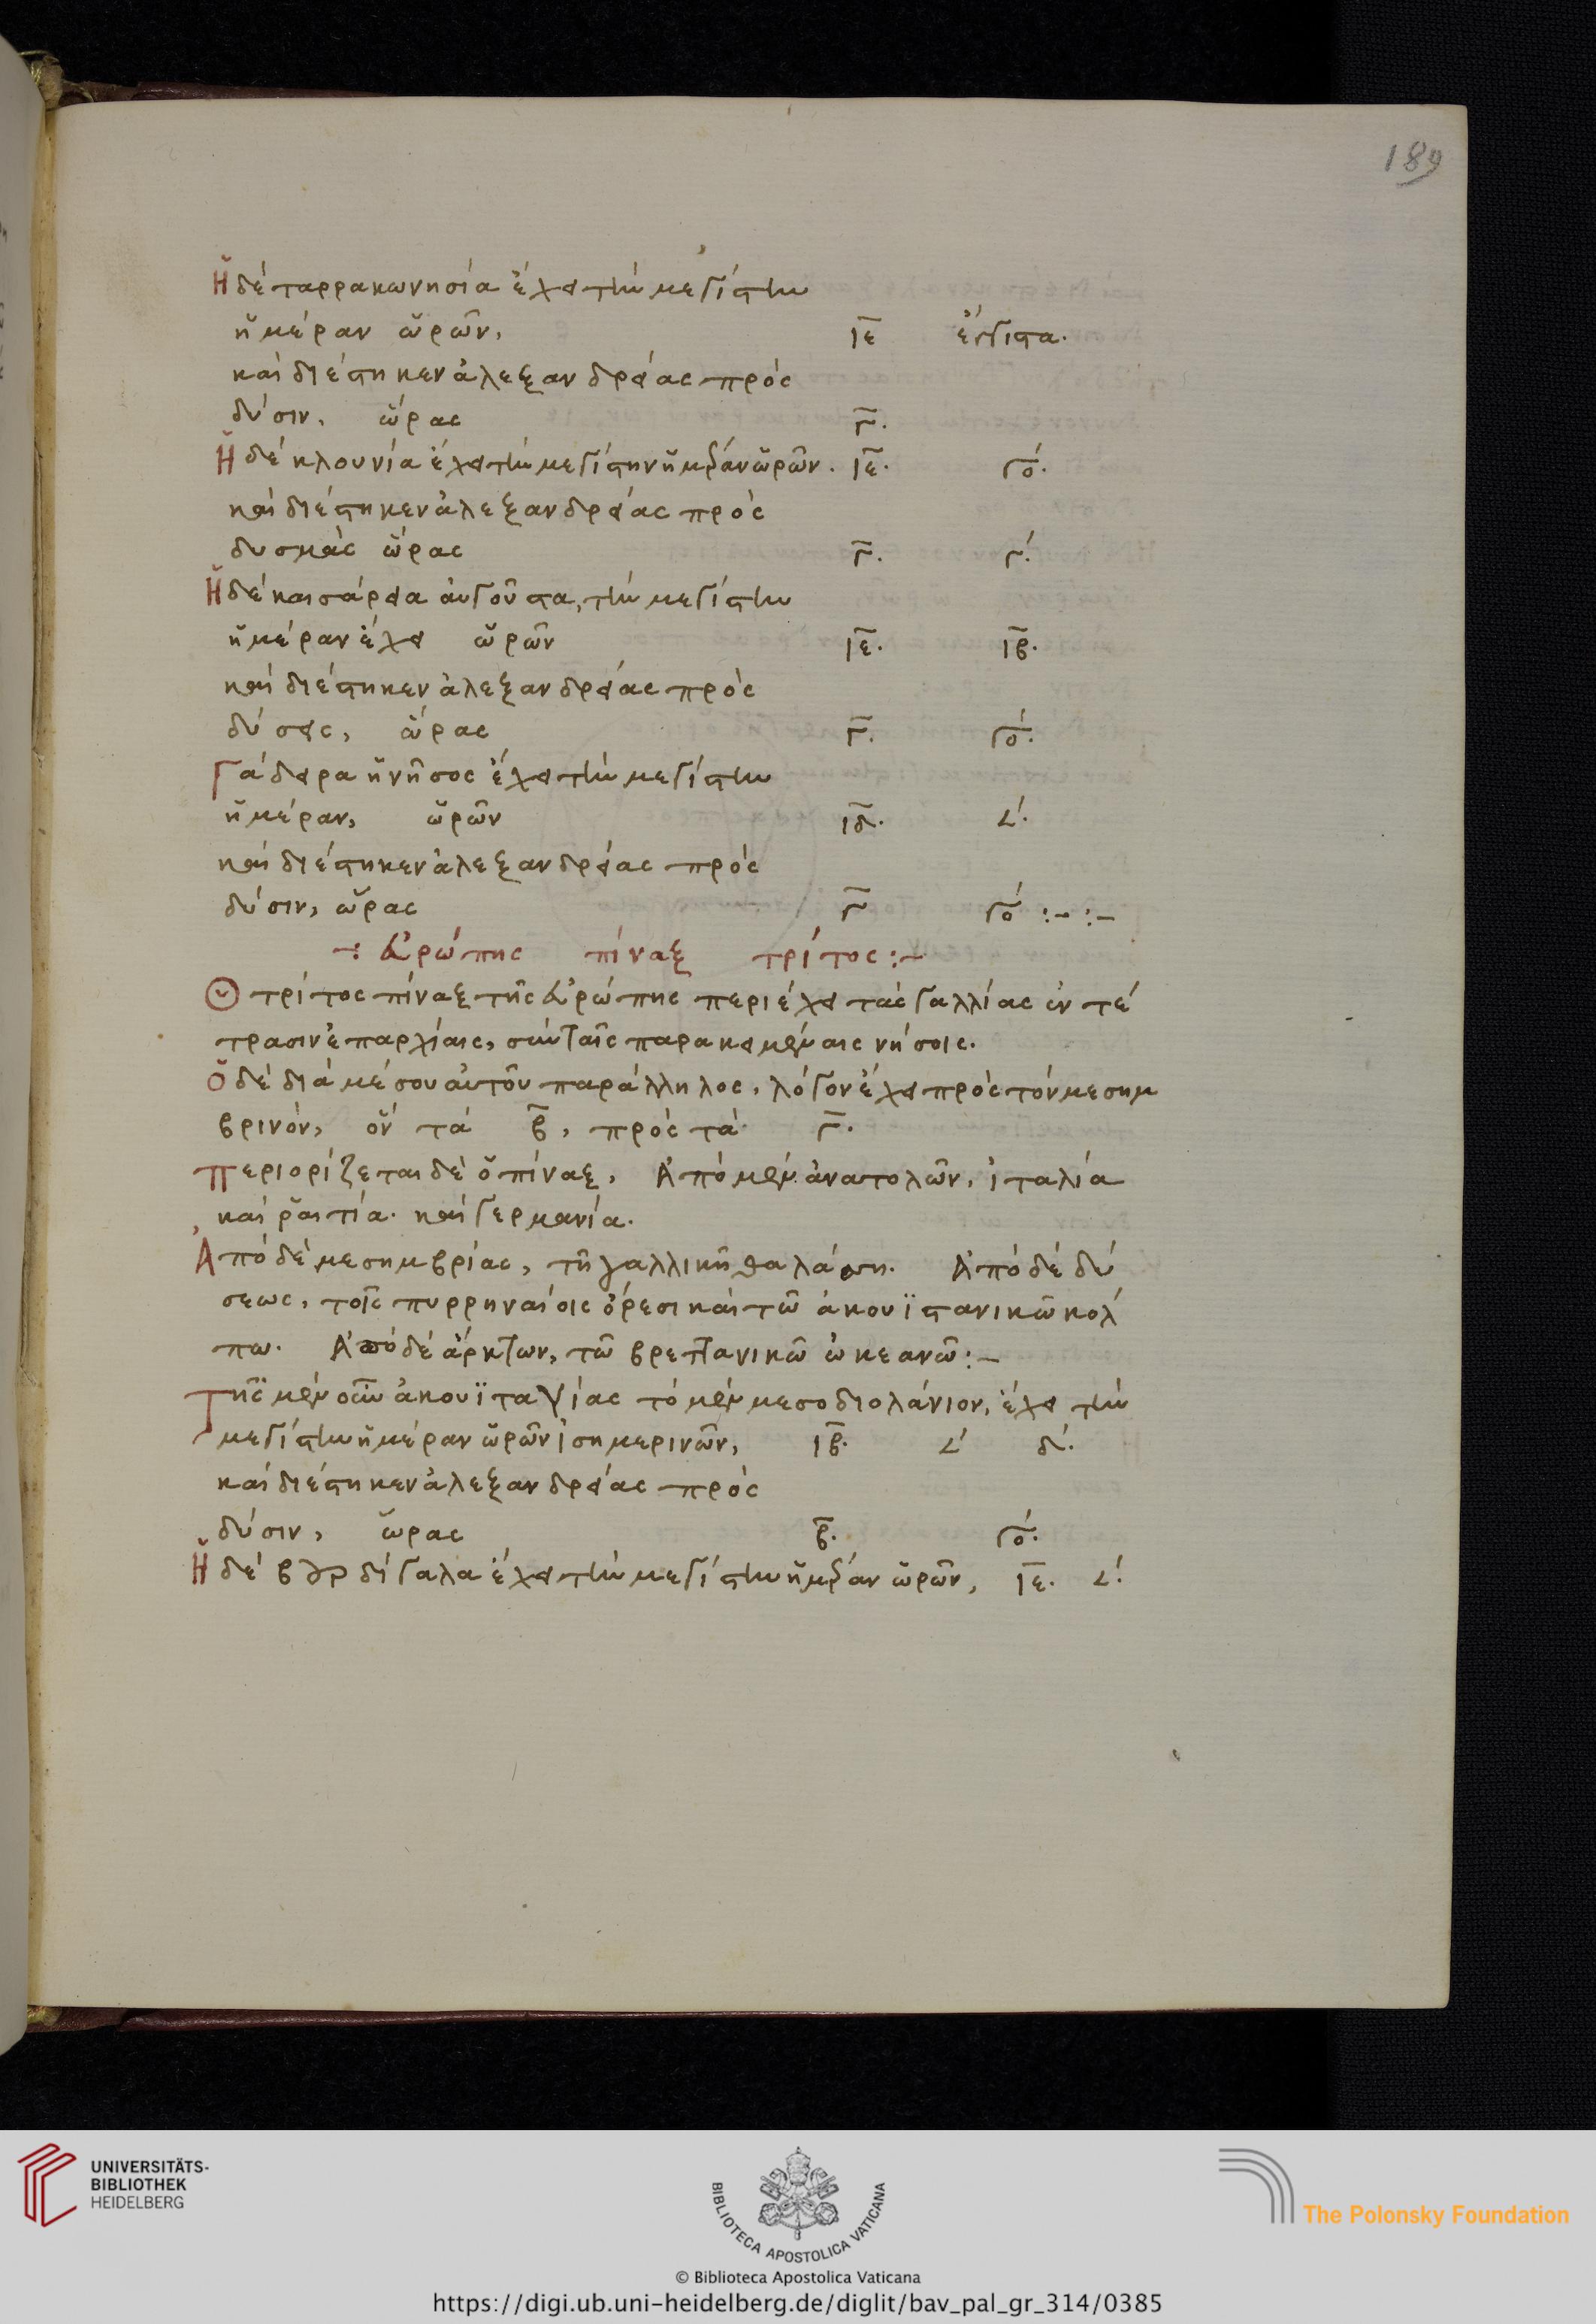 189
Ἡ δὲ ταρρακωνησία ἔχει τὴν μεγίστην
ἡμέραν ὡρῶν, ιε ἔγγιστα.
καὶ διέστηκεν ἀλεξανδρείας πρὸς
δύσιν, ὥρας γ.
Ἡ δὲ κλουνία ἔχει τὴν μεγίστην ἡμέραν ὡρῶν. ιε. γο΄.
καὶ διέστηκεν ἀλεξανδρείας πρὸς
δυσμὰς ὥρας γ. γ΄.
Ἡ δὲ καισάρεια ἀυγοῦστα, τὴν μεγίστην
ἡμέραν ἔχει ὡρῶν ιε. ιβ.
καὶ διέστηκεν ἀλεξανδρείας πρὸς
δύσεις, ὥρας γ. γο΄.
Γάδειρα ἡ νῆσος ἔχει τὴν μεγίστην
ἡμέραν, ὡρῶν ιδ. ∠΄.
καὶ διέστηκεν ἀλεξανδρείας πρὸς
δύσιν, ὥρας γ γο΄ :-:-
-: Εὐρώπης πίναξ τρίτος :-
Ὁ τρίτος πίναξ τῆς Εὐρώπης περιέχει τὰς γαλλίας ἐν τέ
τρασιν ἐπαρχίαις, σὺν ταῖς παρακειμέναις νήσοις.
Ὁ δὲ διὰ μέσου αὐτοῦ παράλληλος, λόγον ἔχει πρὸς τὸν μεσημ
βρινὸν, ὃν τὰ β, πρὸς τὰ γ.
Περιορίζεται δὲ ὁ πίναξ, Ἀπὸ μὲν ἀνατολῶν, ἰταλία
καὶ ῥαιτία. καὶ γερμανία.
Ἀπὸ δὲ μεσημβρίας, τῆ γαλλικῆ θαλάσση. Ἀπὸ δὲ δύ
σεως, τοῖς πυρρηναίοις ὄρεσι καὶ τῶ ἀκουϊτανικῶ κολ
πω. Ἀπὸ δὲ ἄρκτων, τῶ βρεττανικῶ ὠκεανῶ :-
Τῆς μὲν οὖν ἀκουϊτανίας τὸ μὲν μεσοδιολάνιον, ἔχει τὴν
μεγίστην ἡμέραν ὡρῶν ἰσημερινῶν, ιβ. ∠΄ δ΄.
καὶ διέστηκεν ἀλεξανδρείας πρὸς
δύσιν, ὥρας β. γο΄.
Ἡ δὲ βουρδίγαλα ἔχει τὴν μεγίστην ἡμέραν ὡρῶν, ιε. ∠΄.
UNIVERSITÄTS-
BIBLIOTHEK
HEIDELBERG
BIBLIOTECA APOSTOLICA VATICANA
The Polonsky Foundation
© Biblioteca Apostolica Vaticana
https://digi.ub.uni-heidelberg.de/diglit/bav_pal_gr_314/0385